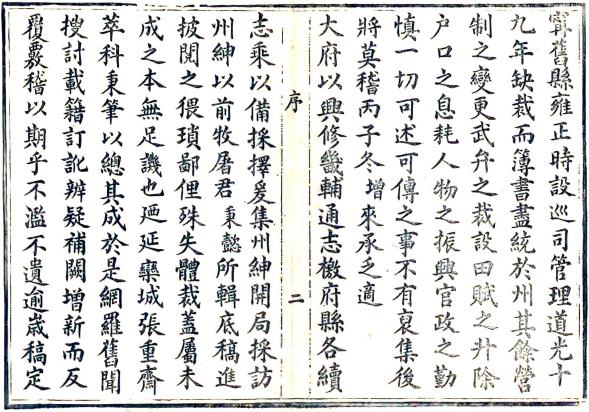 寗舊縣雍正時設巡司管理道光十
九年缺裁而簿書盡統於州其餘營
制之變更武弁之裁設田賦之升除
户口之息耗人物之振興官政之勤
慎一切可述可傳之事不有裒集後
將莫稽丙子冬增來承乏適
大府以興修畿輔通志檄府縣各續
序
二
志乘以備採擇爰集州紳開局採訪
州紳以前牧屠君秉懿所輯底稿進
披閱之猥瑣鄙俚殊失體裁蓋屬未
成之本無足譏也廼延欒城張重齋
萃科秉筆以總其成於是網羅舊聞
搜討載籍訂訛辨疑補闕增新而反
覆覈稽以期乎不濫不遺逾歲稿定